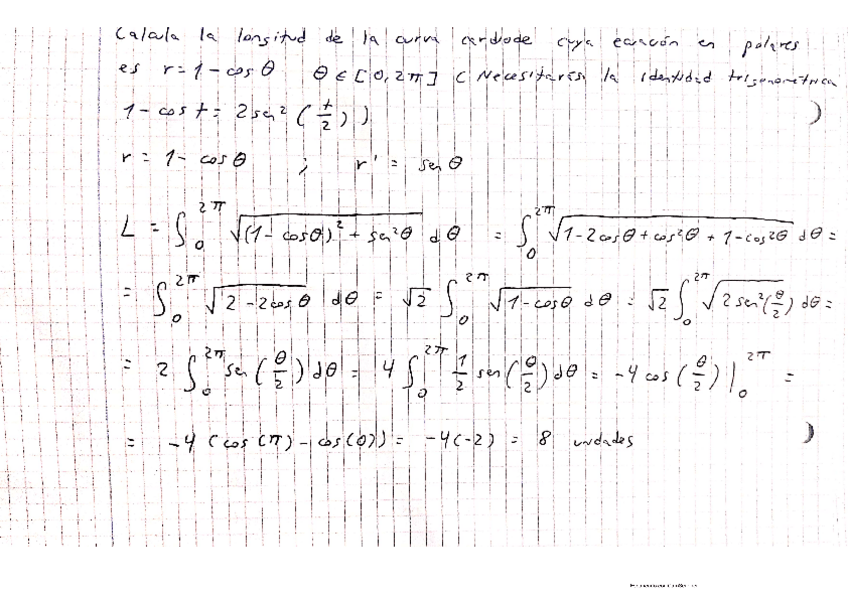 Calcula la longitud de la curva cardiode cuya ecuación en polares
es r = 1 - cos θ θ ∈ [0, 2π] ( Necesitarás la identidad trigonométrica
1 - cos t = 2 sen² (t/2) )
r = 1 - cos θ ; r' = sen θ
L = ∫₀^{2π} √((1 - cosθ)² + sen²θ) dθ = ∫₀^{2π} √(1 - 2cosθ + cos²θ + 1 - cos²θ) dθ =
= ∫₀^{2π} √(2 - 2cosθ) dθ = √2 ∫₀^{2π} √(1 - cosθ) dθ = √2 ∫₀^{2π} √(2 sen²(θ/2)) dθ =
= 2 ∫₀^{2π} sen (θ/2) dθ = 4 ∫₀^{2π} 1/2 sen (θ/2) dθ = -4 cos (θ/2) |₀^{2π} =
= -4 (cos(π) - cos(0)) = -4(-2) = 8 unidades